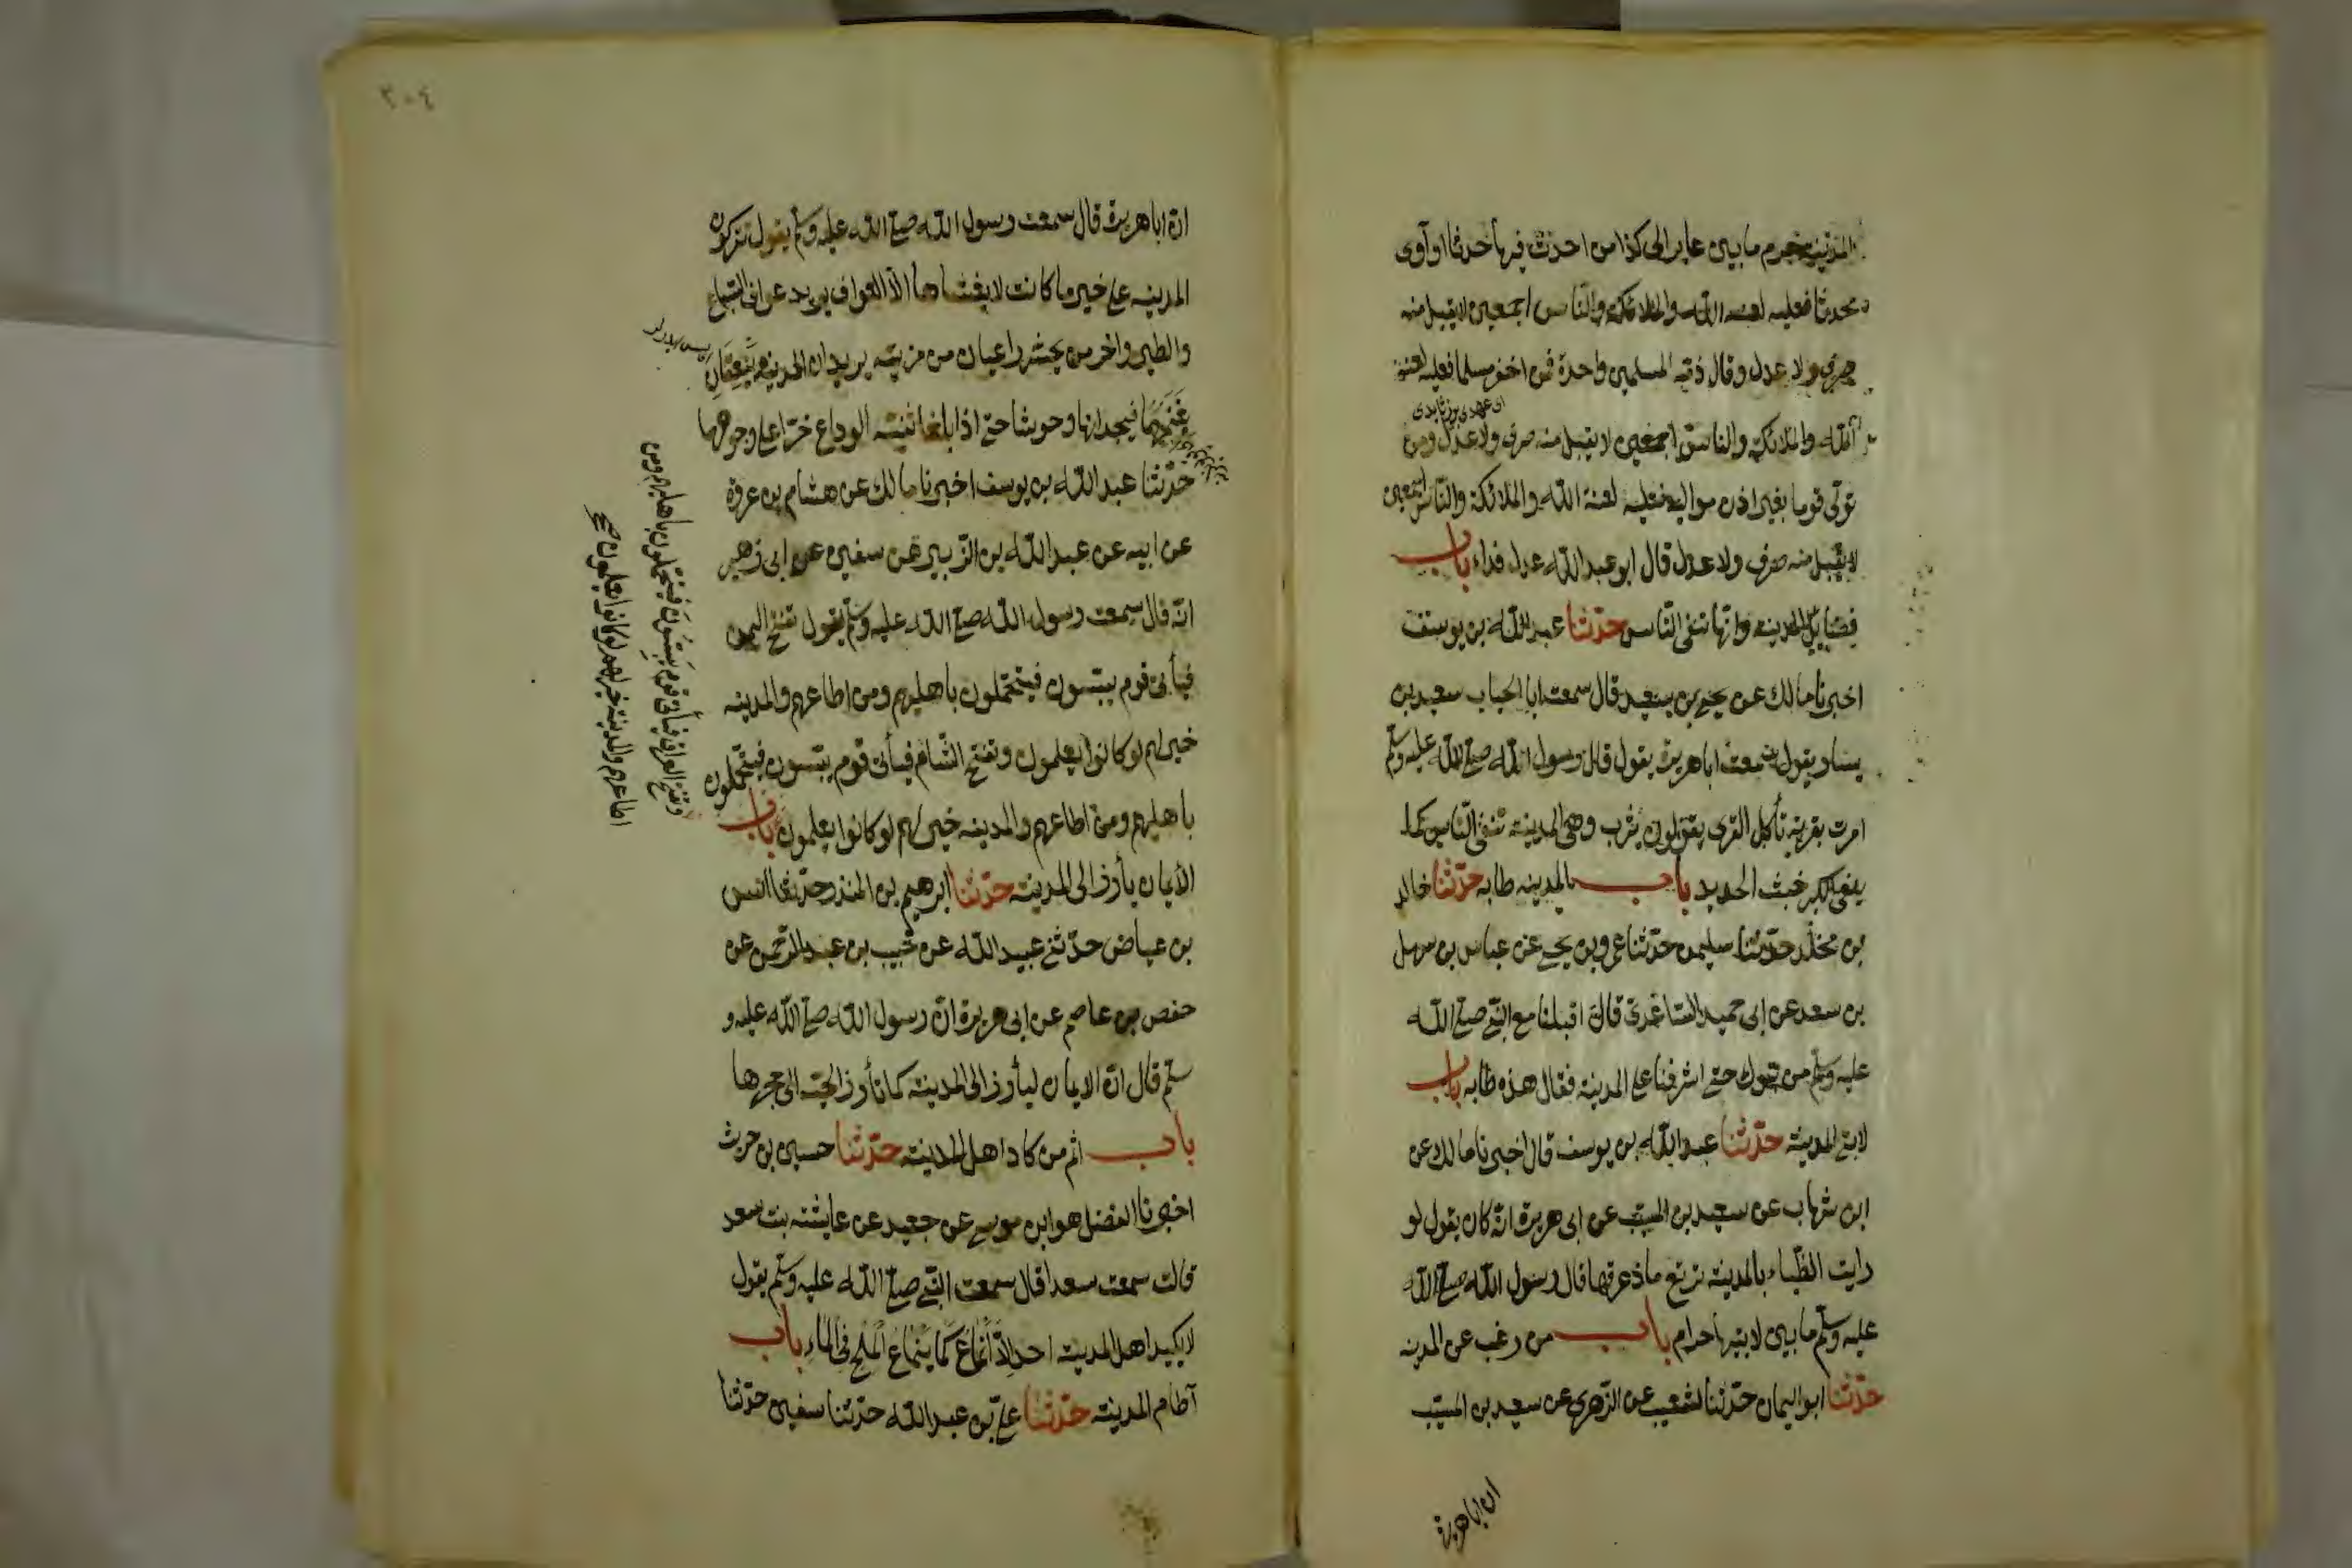 المدينة حرم ما بين عاير الى كذا من احدث فيها حدثا او آوى
محدثا فعليه لعنة الله والملائكة والناس اجمعين لا يقبل منه
صرف ولا عدل وقال ذمة المسلمين واحدة فمن اخفر مسلما فعليه لعنة
الله والملائكة والناس اجمعين لا يقبل منه صرف ولا عدل ومن
تولى قوما بغير اذن مواليه فعليه لعنة الله والملائكة والناس اجمعين
لا يقبل منه صرف ولا عدل قال ابو عبد الله عدل فداء باب
فضايل المدينة وانها تنفى الناس حدثنا عبد الله بن يوسف
اخبرنا مالك عن يحيى بن سعيد قال سمعت ابا الحباب سعيد بن
يسار يقول سمعت ابا هريرة يقول قال رسول الله صلى الله عليه وسلم
امرت بقرية تأكل القرى يقولون يثرب وهى المدينة تنفى الناس كما
ينفى الكير خبث الحديد باب المدينة طابه حدثنا خالد
بن مخلد حدثنا سليمن حدثنا عمرو بن يحيى عن عباس بن سهل
بن سعد عن ابى حميد الساعدى قال اقبلنا مع النبى صلى الله
عليه وسلم من تبوك حتى اشرفنا على المدينة فقال هذه طابه باب
لابتى المدينة حدثنا عبد الله بن يوسف قال اخبرنا مالك عن
ابن شهاب عن سعيد بن المسيب عن ابى هريرة انه كان يقول لو
رايت الظباء بالمدينة ترتع ماذعرتها قال رسول الله صلى الله
عليه وسلم ما بين لابتيها حرام باب من رغب عن المدينة
حدثنا ابو اليمان حدثنا شعيب عن الزهرى عن سعيد بن المسيب
ان ابا هريرة
٣٠٤
ان ابا هريرة قال سمعت رسول الله صلى الله عليه وسلم يقول تتركون
المدينة على خير ما كانت لا يغشاها الا العواف يريد عوافى السباع
والطير واخر من يحشر راعيان من مزينة يريدان المدينة ينعقان
بغنمهما فيجدانها وحوشا حتى اذا بلغا ثنية الوداع خرا على وجوههما
حدثنا عبد الله بن يوسف اخبرنا مالك عن هشام بن عروة
عن ابيه عن عبد الله بن الزبير عن سفين عن ابى زهير
انه قال سمعت رسول الله صلى الله عليه وسلم يقول تفتح اليمن
فيأتى قوم يبسون فيتحملون باهليهم ومن اطاعهم والمدينة
خير لهم لو كانوا يعلمون وتفتح الشام فيأتى قوم يبسون فيتحملون
باهليهم ومن اطاعهم والمدينة خير لهم لو كانوا يعلمون باب
الايمان يأرز الى المدينة حدثنا ابرهيم بن المنذر حدثنا انس
بن عياض حدثنى عبيد الله عن خبيب بن عبد الرحمن عن
حفص بن عاصم عن ابى هريرة ان رسول الله صلى الله عليه و
سلم قال ان الايمان ليأرز الى المدينة كما تأرز الحية الى جحرها
باب اثم من كاد اهل المدينة حدثنا حسين بن حريث
اخبرنا الفضل هو ابن موسى عن جعيد عن عايشة بنت سعد
قالت سمعت سعدا قال سمعت النبى صلى الله عليه وسلم يقول
لا يكيد اهل المدينة احد الا انماع كما ينماع الملح فى الماء باب
آطام المدينة حدثنا على بن عبد الله حدثنا سفين حدثنا
وتفتح العراق فيأتى قوم يبسون فيتحملون باهليهم ومن
اطاعهم والمدينة خير لهم لو كانوا يعلمون صح